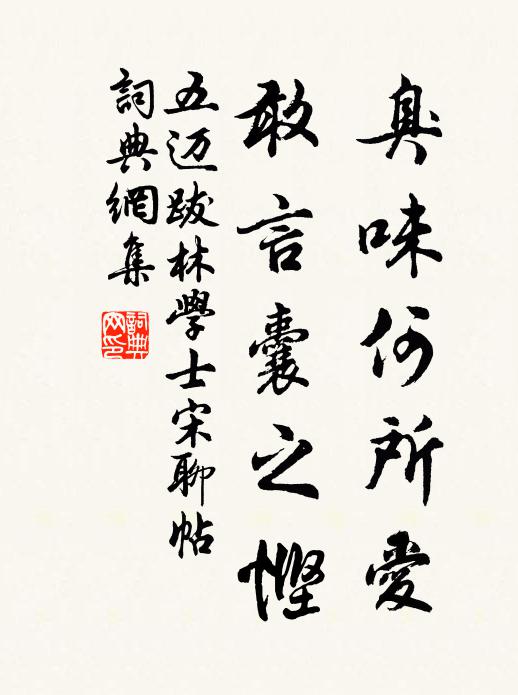 臭味何所愛
敢言囊之慳
五迈跋林學士宋聊帖
詞典網集
詞典網印